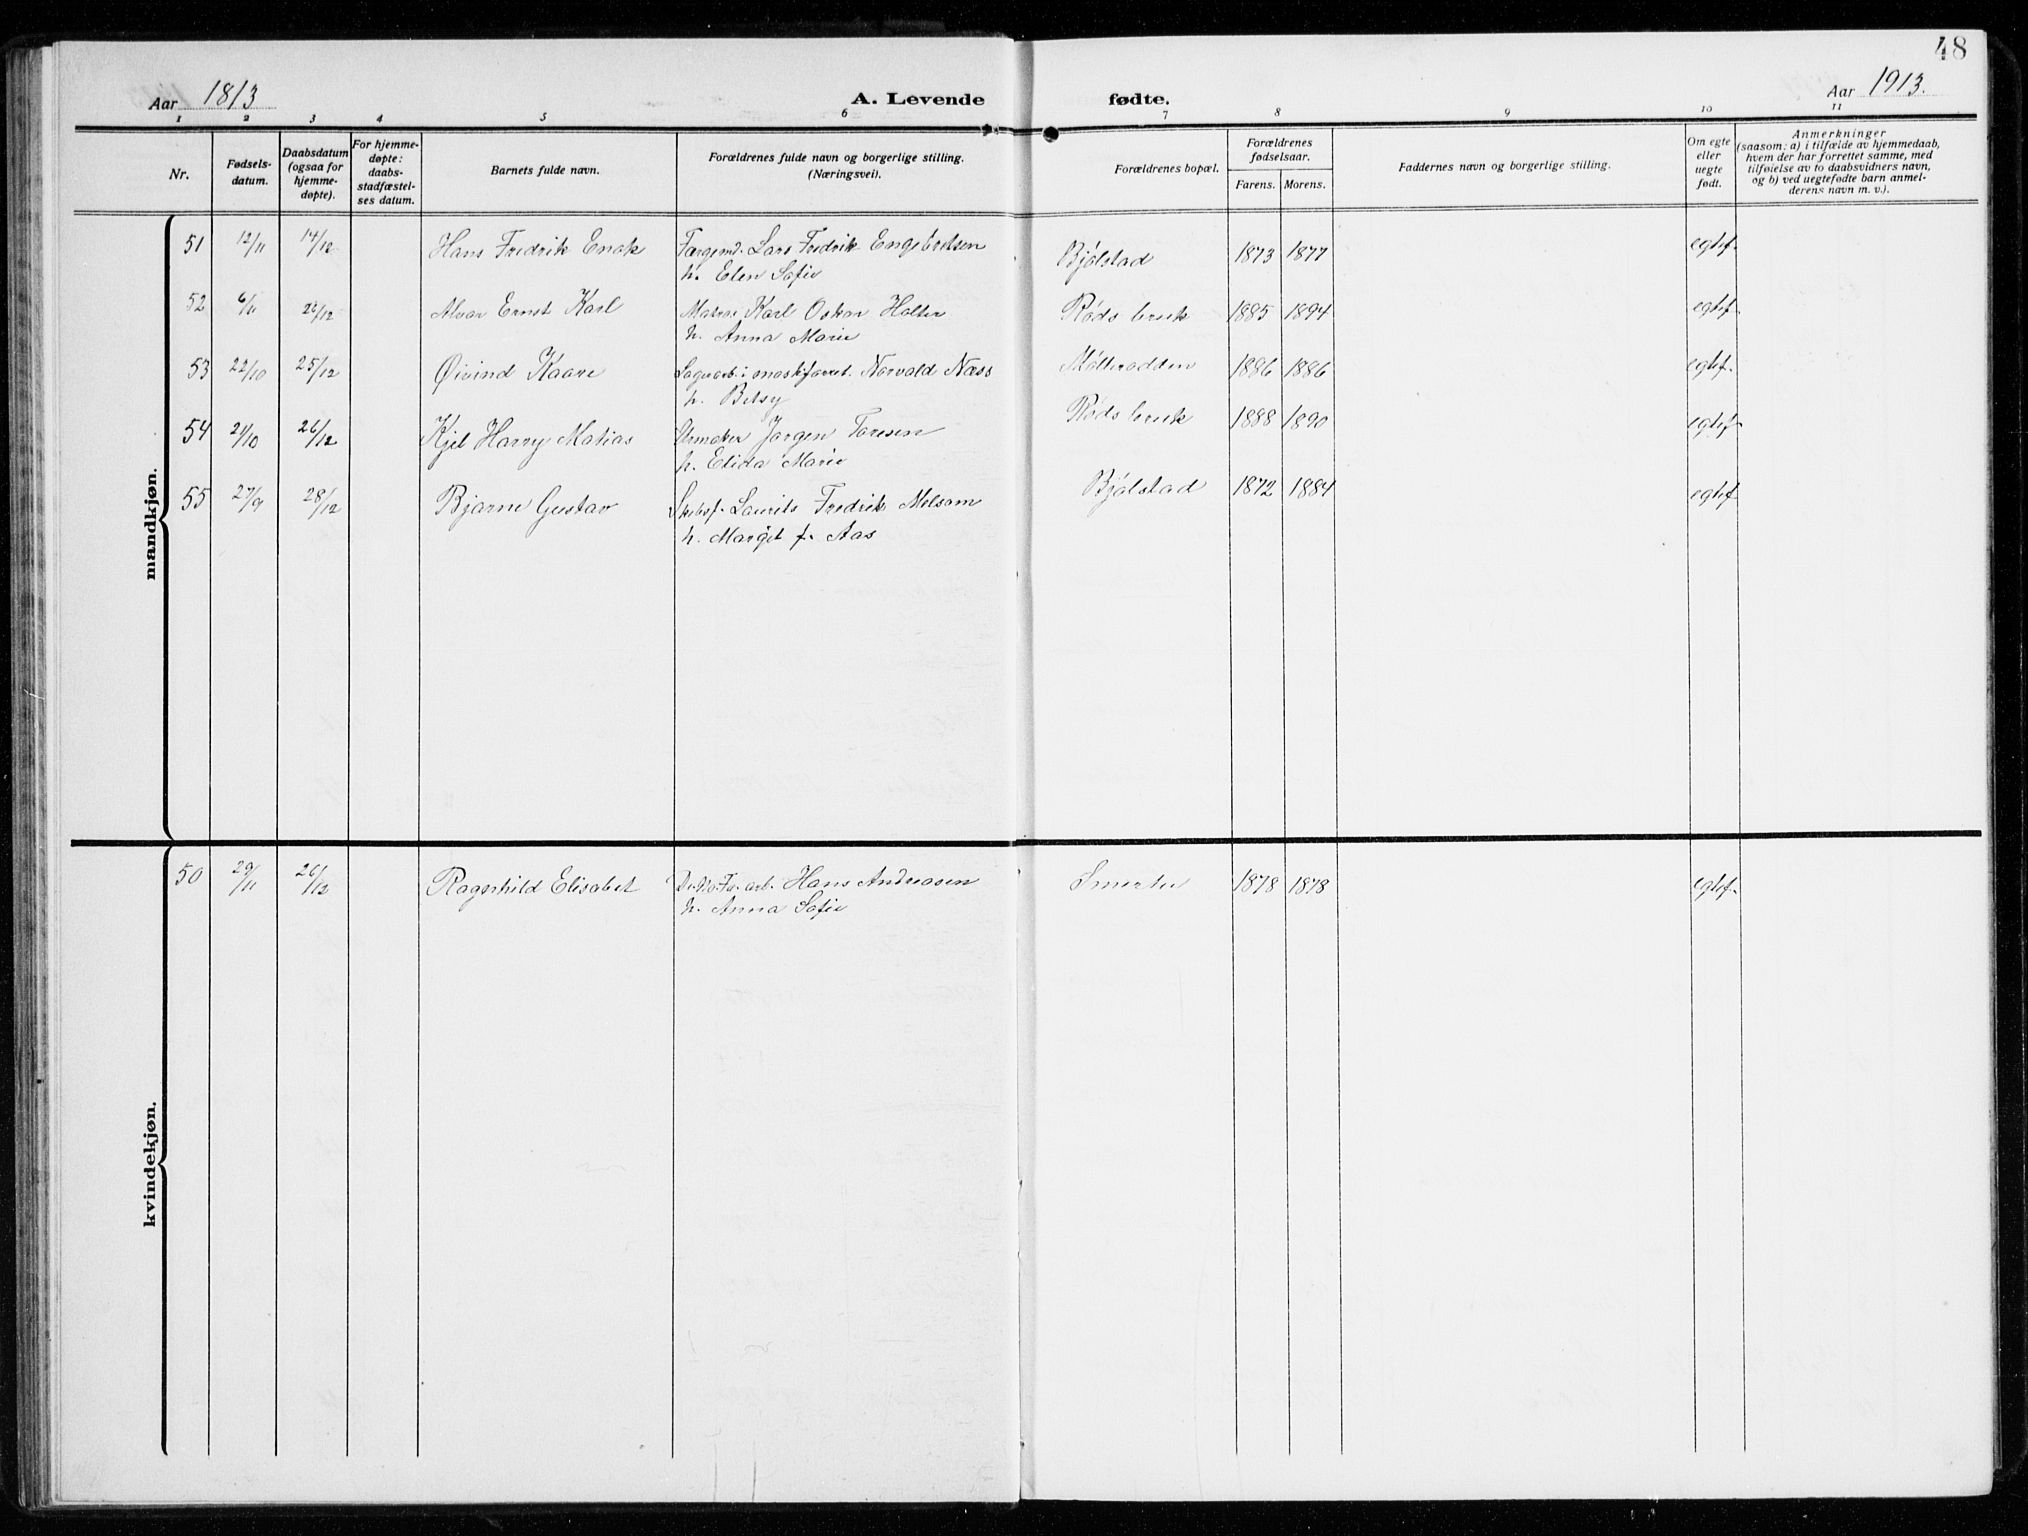 48
Aar 1813
A. Levende fødte.
Aar 1913.
1 2 3 4 5 6 7 8 9 10 11
Nr.
Fødsels-
datum.
Daabsdatum
(ogsaa for
hjemme-
døpte).
For hjemme-
døpte:
daabs-
stadfæstel-
ses datum.
Barnets fulde navn.
Forældrenes fulde navn og borgerlige stilling.
(Næringsvei).
Forældrenes bopæl.
Forældrenes
fødselsaar.
Farens. Morens.
Faddernes navn og borgerlige stilling.
Om egte
eller
uegte
født.
Anmerkninger
(saasom: a) i tilfælde av hjemmedaab,
hvem der har forrettet samme, med
tilføielse av to daabsvidners navn,
og b) ved uegtefødte barn anmel-
derens navn m. v.).
mandkjøn.
51 12/11 14/12 Hans Fredrik Enok Fargemd. Lars Fredrik Engebretsen Bjølstad 1873 1877 egtef.
h. Elen Sofie
52 6/11 Alvar Ernst Karl Matros Karl Oskar Holter Røds bruk 1885 1894 egtef.
h. Anna Marie
53 22/10 25/12 Øivind Kaare Norvald Næss Møllerodden 1886 1886 egtef.
h. Betsy
54 21/10 26/12 Kjel Harry Matias Urmaker Jørgen Toresen Røds bruk 1888 1890 egtef.
h. Elida Marie
55 27/9 28/12 Bjarne Gustav Skibsf. Laurits Fredrik Melsom Bjølstad 1872 1884 egtef
h. Margit f. Aas
kvindekjøn.
50 29/11 26/12 Ragnhild Elisabet Hans Andreasen Smertu 1878 1878 egtef.
h. Anna Sofie